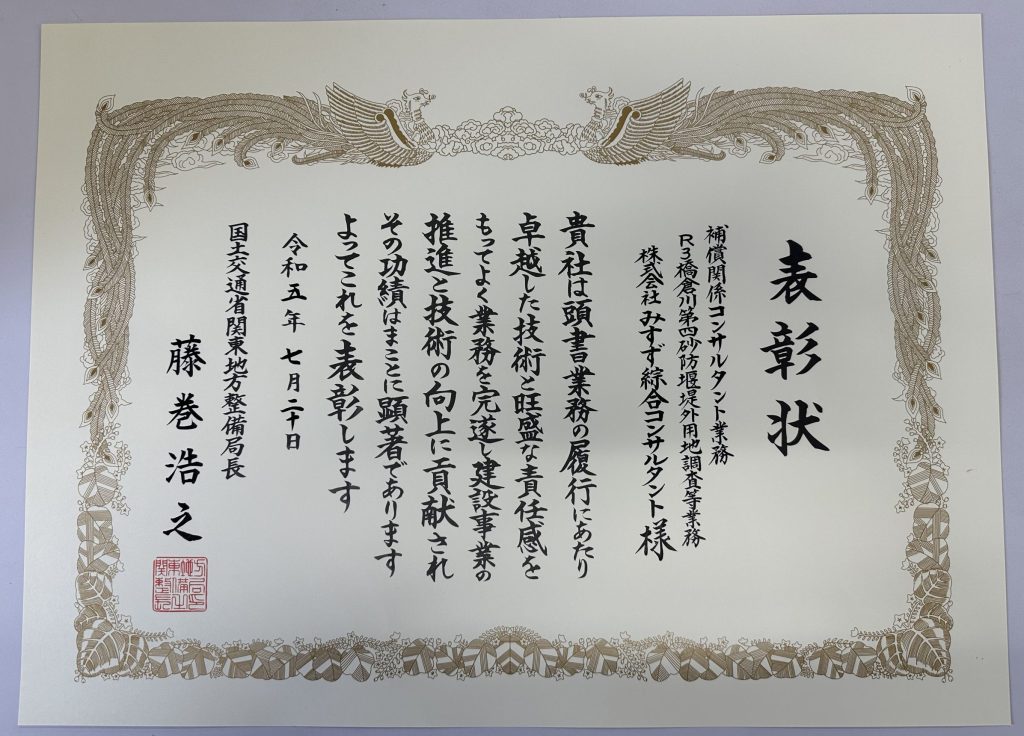 表彰状
補償関係コンサルタント業務
R3橋倉川第四砂防堰堤外用地調査等業務
株式会社 みすず綜合コンサルタント 様
貴社は頭書業務の履行にあたり
卓越した技術と旺盛な責任感を
もってよく業務を完遂し建設事業の
推進と技術の向上に貢献され
その功績はまことに顕著であります
よってこれを表彰します
令和五年 七月二十日
国土交通省関東地方整備局長
藤巻浩之